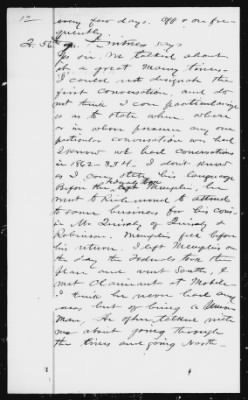 12
every few days. Off & on fre-
quently.
2. 56th Q. Witness says
Yes sir. We talked about
it a great many times.
I could not designate the
first conversation, and do
not think I can particularize
so as to state when, where
or in whose presence any one
particular conversation was had.
I know we had conversations
in 1862-3 & 4. I don't know
as I can state his language
Before the Memphis, he
went to Richmond to attend
to some business for his cou-
sin Mr
Robinson. Memphis fell before
his return. I left Memphis on
the day the Federals took the
place and went South, & I
met Claimant at Mobile.
I think he never held any
views but of being a Union
Man. He often talked with
me about going through
the lines and going North-